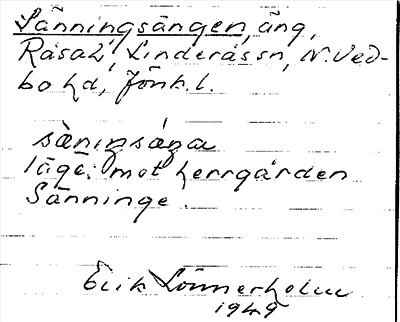 Sänningsängen, äng,
Råsah, Linderås sn, N. Ved-
bo hd, Jönk. l.
läge: mot herrgården
Sänninge.
Erik Lönnerholm
1949